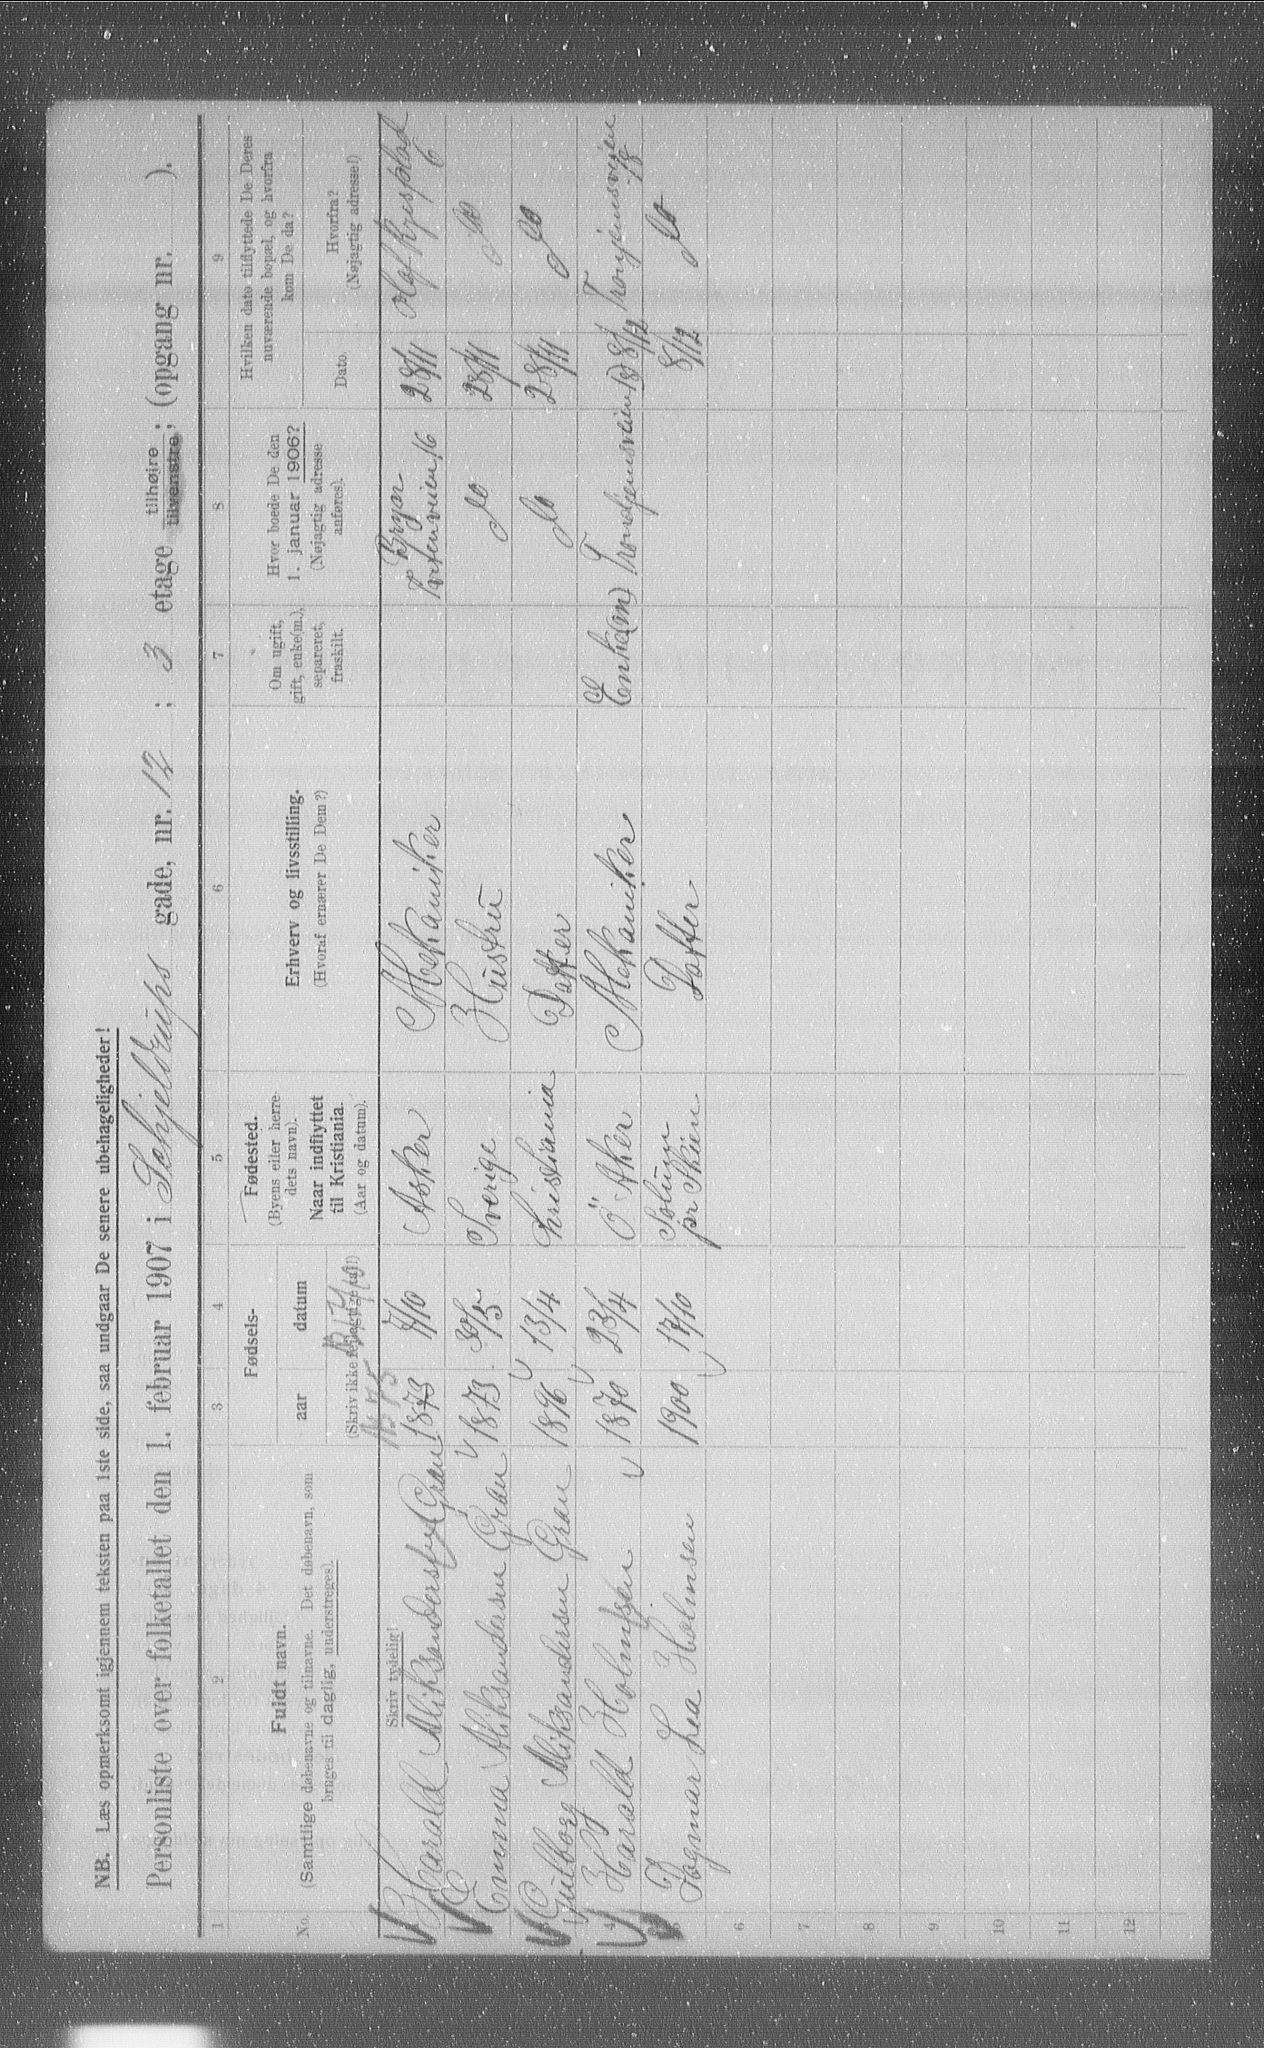 NB. Læs opmerksomt igjennem teksten paa 1ste side, saa undgaar De senere ubehageligheder!
Personliste over folketallet den 1. februar 1907 i Schjeldrups gade, nr. 12 ; 3 etage tilhøire tilvenstre ; (opgang nr. ).
1 2 3 4 5 6 7 8 9
No. Fuldt navn. (Samtlige døbenavne og tilnavne. Det døbenavn, som bruges til daglig, understreges).
Fødsels- aar datum (Skriv ikke feilagtige tal!)
Fødested. (Byens eller herredets navn). Naar indflyttet til Kristiania. (Aar og datum).
Erhverv og livsstilling. (Hvoraf ernærer De Dem?)
Om ugift, gift, enke(m.), separeret, fraskilt.
Hvor boede De den 1. januar 1906? (Nøjagtig adresse anføres).
Hvilken dato tilflyttede De Deres nuværende bopæl, og hvorfra kom De da?
Dato. Hvorfra? (Nøjagtig adresse!)
Skriv tydelig!
1875 17/10
Harald Aliksandersen Gran 1873 7/10 Asker Mekaniker Bryn Tvetenveien 16 28/11 Olaf Kyrres plads 6
Emma Aliksandersen Gran 1873 30/5 Sverige Hustru Do 28/11 Do
Gulborg Aliksandersen Gran 1896 13/4 Kristiania Datter Do 28/11 Do
4 Harald Holmsen 1870 23/4 Ö Aker Mekaniker Enke(m) Trondjemsveien 18 8/12 Tronjemsveien 18
5 Dagmar Lea Holmsen 1900 17/10 Solum pr Skien Datter 8/12 Do
6
7
8
9
10
11
12